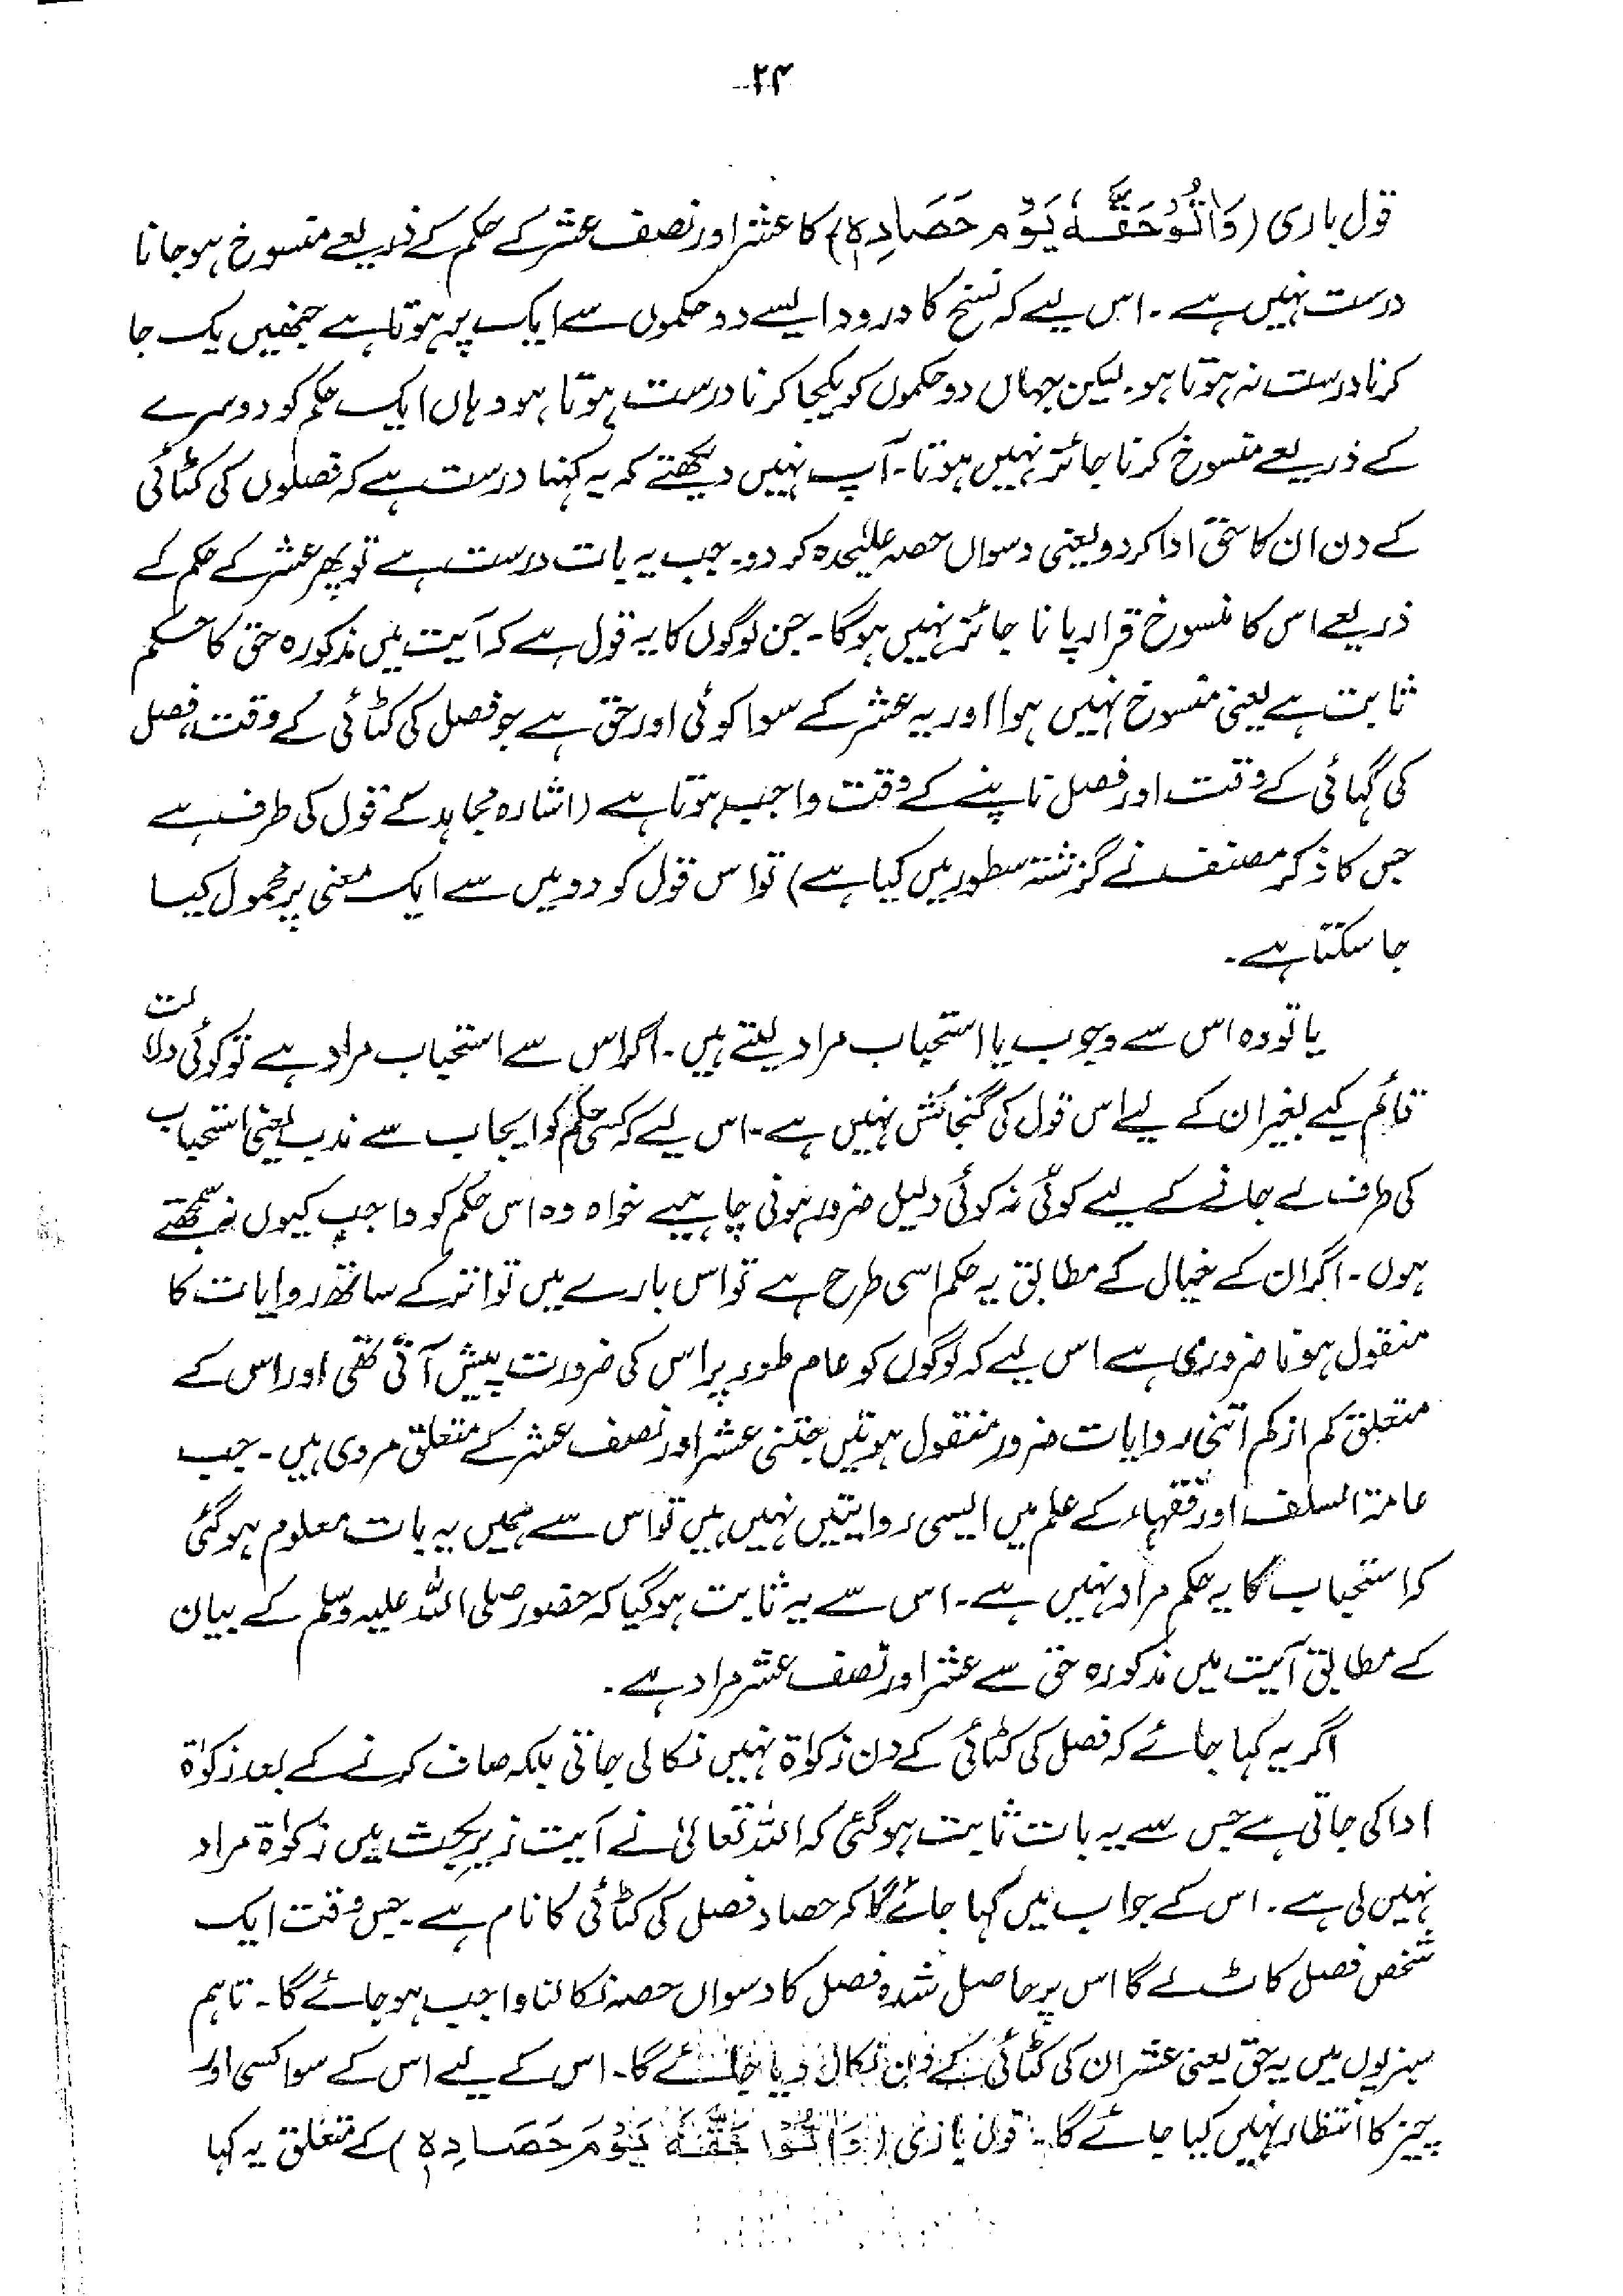 ۲۴
قول باری (وَاٰتُوْحَقَّهٗ یَوْمَ حَصَادِہٖ) کا عشر اور نصف عشر کے حکم کے ذریعے منسوخ ہو جانا
درست نہیں ہے۔ اس لیے کہ نسخ کا ورود ایسے دو حکموں سے ایک پر ہوتا ہے جنھیں یک جا
کرنا درست نہ ہوتا ہو۔ لیکن جہاں دو حکموں کو یکجا کرنا درست ہوتا ہو وہاں ایک حکم کو دوسرے
کے ذریعے منسوخ کرنا جائز نہیں ہوتا۔ آپ نہیں دیکھتے کہ یہ کہنا درست ہے کہ فصلوں کی کٹائی
کے دن ان کا حق ادا کر دو یعنی دسواں حصہ علیٰحدہ کر دو۔ جب یہ بات درست ہے تو پھر عشر کے حکم کے
ذریعے اس کا منسوخ قرار پانا جائز نہیں ہوگا۔ جن لوگوں کا یہ قول ہے کہ آیت میں مذکورہ حق کا حکم
ثابت ہے یعنی منسوخ نہیں ہوا اور یہ عشر کے سوا کوئی اور حق ہے جو فصل کی کٹائی کے وقت، فصل
کی گہائی کے وقت اور فصل ناپنے کے وقت واجب ہوتا ہے (اشارہ مجاہد کے قول کی طرف ہے
جس کا ذکر مصنف نے گزشتہ سطور میں کیا ہے) تو اس قول کو دو میں سے ایک معنی پر محمول کیا
جا سکتا ہے۔
یا تو وہ اس سے وجوب یا استحباب مراد لیتے ہیں۔ اگر اس سے استحباب مراد ہے تو کوئی دلالت
قائم کیے بغیر ان کے لیے اس قول کی گنجائش نہیں ہے۔ اس لیے کہ کسی حکم کو ایجاب سے ندب یعنی استحباب
کی طرف لے جانے کے لیے کوئی نہ کوئی دلیل ضرور ہونی چاہیے خواہ وہ اس حکم کو واجب کیوں نہ سمجھتے
ہوں۔ اگر ان کے خیال کے مطابق یہ حکم اسی طرح ہے تو اس بارے میں تواتر کے ساتھ روایات کا
منقول ہونا ضروری ہے اس لیے کہ لوگوں کو عام طور پر اس کی ضرورت پیش آتی تھی اور اس کے
متعلق کم از کم اتنی روایات ضرور منقول ہوتیں جتنی عشر اور نصف عشر کے متعلق مروی ہیں۔ جب
عامۃ السلف اور فقہاء کے علم میں ایسی روایتیں نہیں ہیں تو اس سے ہمیں یہ بات معلوم ہو گئی
کہ استحباب کا یہ حکم مراد نہیں ہے۔ اس سے یہ ثابت ہو گیا کہ حضور صلی اللہ علیہ وسلم کے بیان
کے مطابق آیت میں مذکورہ حق سے عشر اور نصف عشر مراد ہے۔
اگر یہ کہا جائے کہ فصل کی کٹائی کے دن زکوٰۃ نہیں نکالی جاتی بلکہ صاف کرنے کے بعد زکوٰۃ
ادا کی جاتی ہے جس سے یہ بات ثابت ہو گئی کہ اللہ تعالیٰ نے آیت زیر بحث میں زکوٰۃ مراد
نہیں لی ہے۔ اس کے جواب میں کہا جائے گا کہ حصاد فصل کی کٹائی کا نام ہے۔ جس وقت ایک
شخص فصل کاٹ لے گا اس پر حاصل شدہ فصل کا دسواں حصہ نکالنا واجب ہو جائے گا۔ تاہم
سبزیوں میں یہ حق یعنی عشر ان کی کٹائی کے دن نکال دیا جائے گا۔ اس کے لیے اس کے سوا کسی اور
چیز کا انتظار نہیں کیا جائے گا۔ قول باری (وَاٰتُوْا حَقَّهٗ یَوْمَ حَصَادِہٖ) کے متعلق یہ کہا